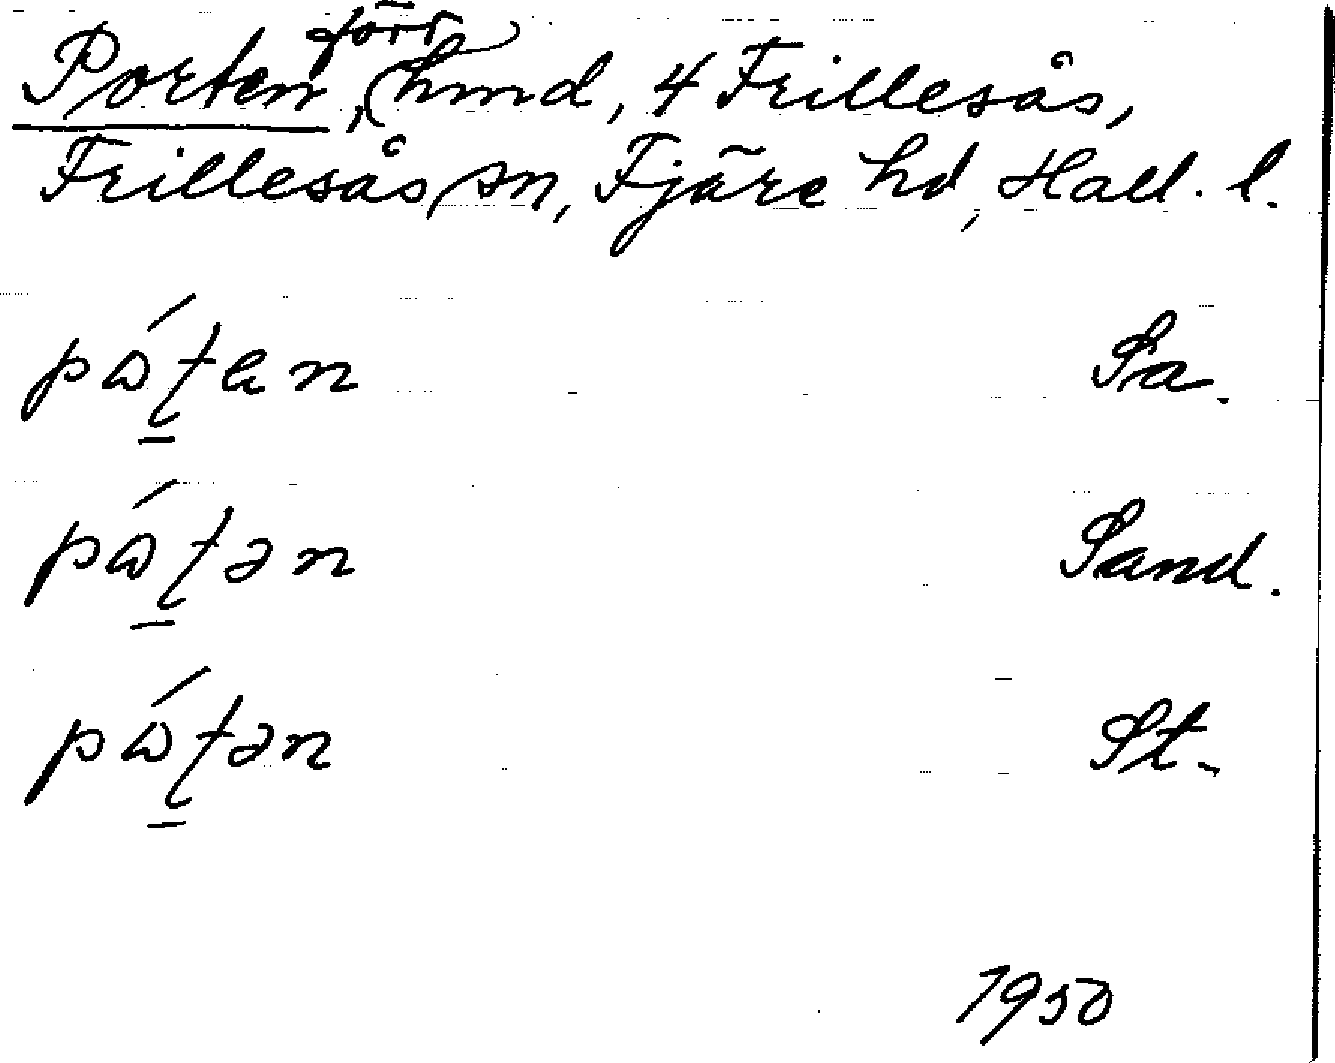 Porten, förr hmd, 4 Frillesås,
Frillesås sn, Fjäre hd, Hall. l.
pɷ́ʈan Sa.
pɷ́ʈən Sand.
pɷ́ʈən St.
1950